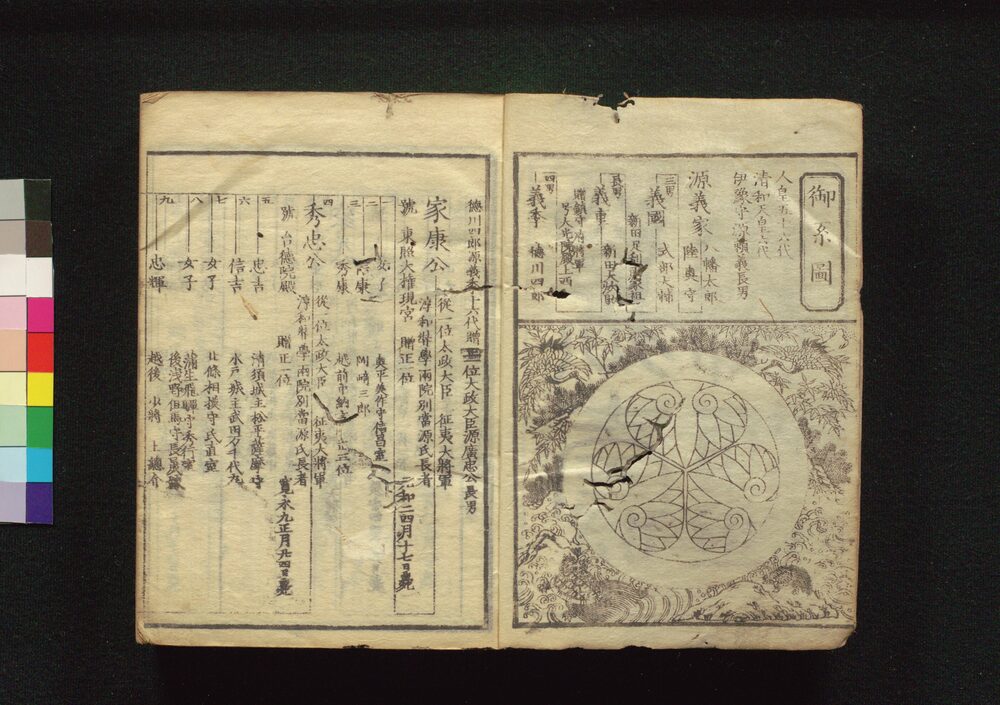 御系圖
人皇五十六代
清和天皇六代
伊豫守源頼義長男
源義家 八幡太郎
陸奥守
三男
義國 式部大輔
新田足利両家祖
長男
義重 新田大炊助
贈鎮守府将軍
号大光院殿上西
四男
義季 德川四郎
德川四郎源義季十六代贈 位大政大臣源廣忠公長男
家康公 従一位太政大臣 征夷大將軍
淳和奬學兩院別當源氏長者
元和二四月十七日薨
號 東照大権現宮 贈正一位
一 女子 奥平美作守信昌室
二 信康 岡崎三郎
三 秀康 越前中納言 正三位
四
秀忠公 従一位太政大臣 征夷大將軍
淳和奬學兩院別當源氏長者
寛永九正月廿四日薨
號 台德院殿 贈正一位
五 忠吉 清須城主松平薩摩守
六 信吉 水戸城主武田万千代丸
七 女子 北條相摸守氏直室
八 女子 蒲生飛驒守秀行室
後浅野但馬守長晟室
九 忠輝 越後 少将 上總介